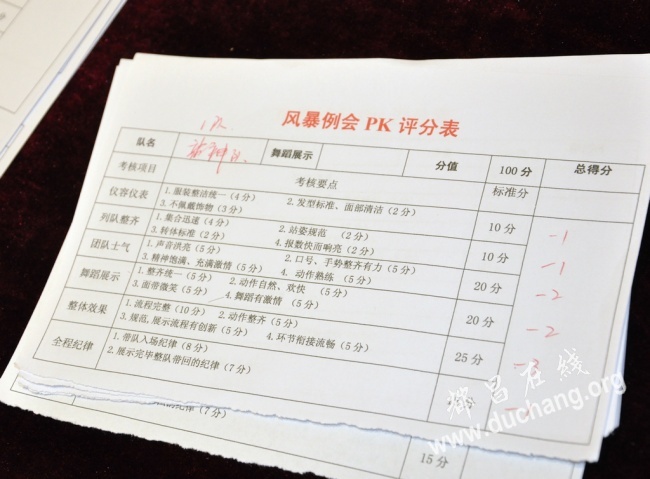 风暴例会 PK 评分表
1队
队名 战神队 舞蹈展示 分值 100分 总得分
考核项目 考核要点 标准分
仪容仪表 1.服装整洁统一(4分) 2.发型标准、面部清洁(2分) 10分 -1
3.不佩戴饰物(3分)
列队整齐 1.集合迅速(4分) 2.站姿规范 (2分) 10分 -1
3.转体标准(2分) 4.报数快而响亮(2分)
团队士气 1.声音洪亮(5分) 2.口号、手势整齐有力(5分) 20分 -2
3.精神饱满、充满激情(5分) 4. 动作熟练 (5分)
舞蹈展示 1.整齐统一(5分) 2.动作自然、欢快 (5分) 20分 -2
3.面带微笑(5分) 4.舞蹈有激情 (5分)
整体效果 1.流程完整(10分) 2.动作整齐(5分) 25分 -3
3.规范,展示流程有创新(5分) 4.环节衔接流畅(5分)
全程纪律 1.带队入场纪律(8分) 分
2.展示完毕整队带回的纪律(7分)
的纪律(7分)
15分
都昌在线
www.duchang.org